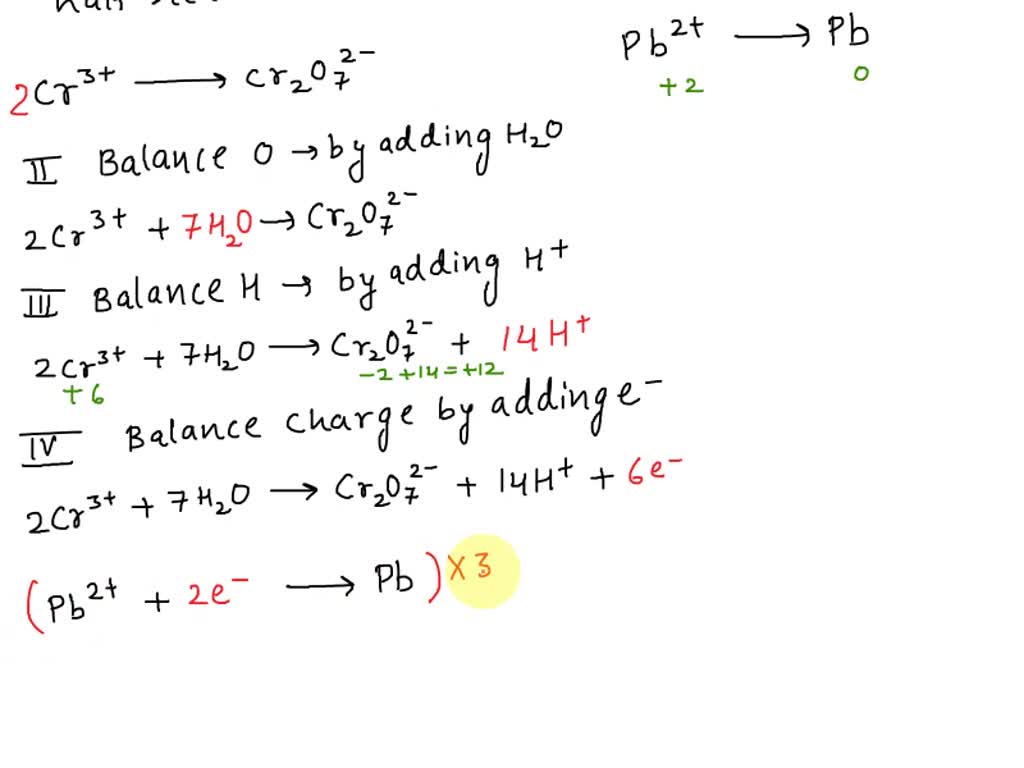 2Cr³⁺ ⟶ Cr₂O₇²⁻
Pb²⁺ ⟶ Pb
+2 0
II Balance O → by adding H₂O
2Cr³⁺ + 7H₂O → Cr₂O₇²⁻
III Balance H → by adding H⁺
2Cr³⁺ + 7H₂O ⟶ Cr₂O₇²⁻ + 14H⁺
+6 -2+14=+12
IV Balance charge by adding e⁻
2Cr³⁺ + 7H₂O ⟶ Cr₂O₇²⁻ + 14H⁺ + 6e⁻
(Pb²⁺ + 2e⁻ ⟶ Pb) × 3